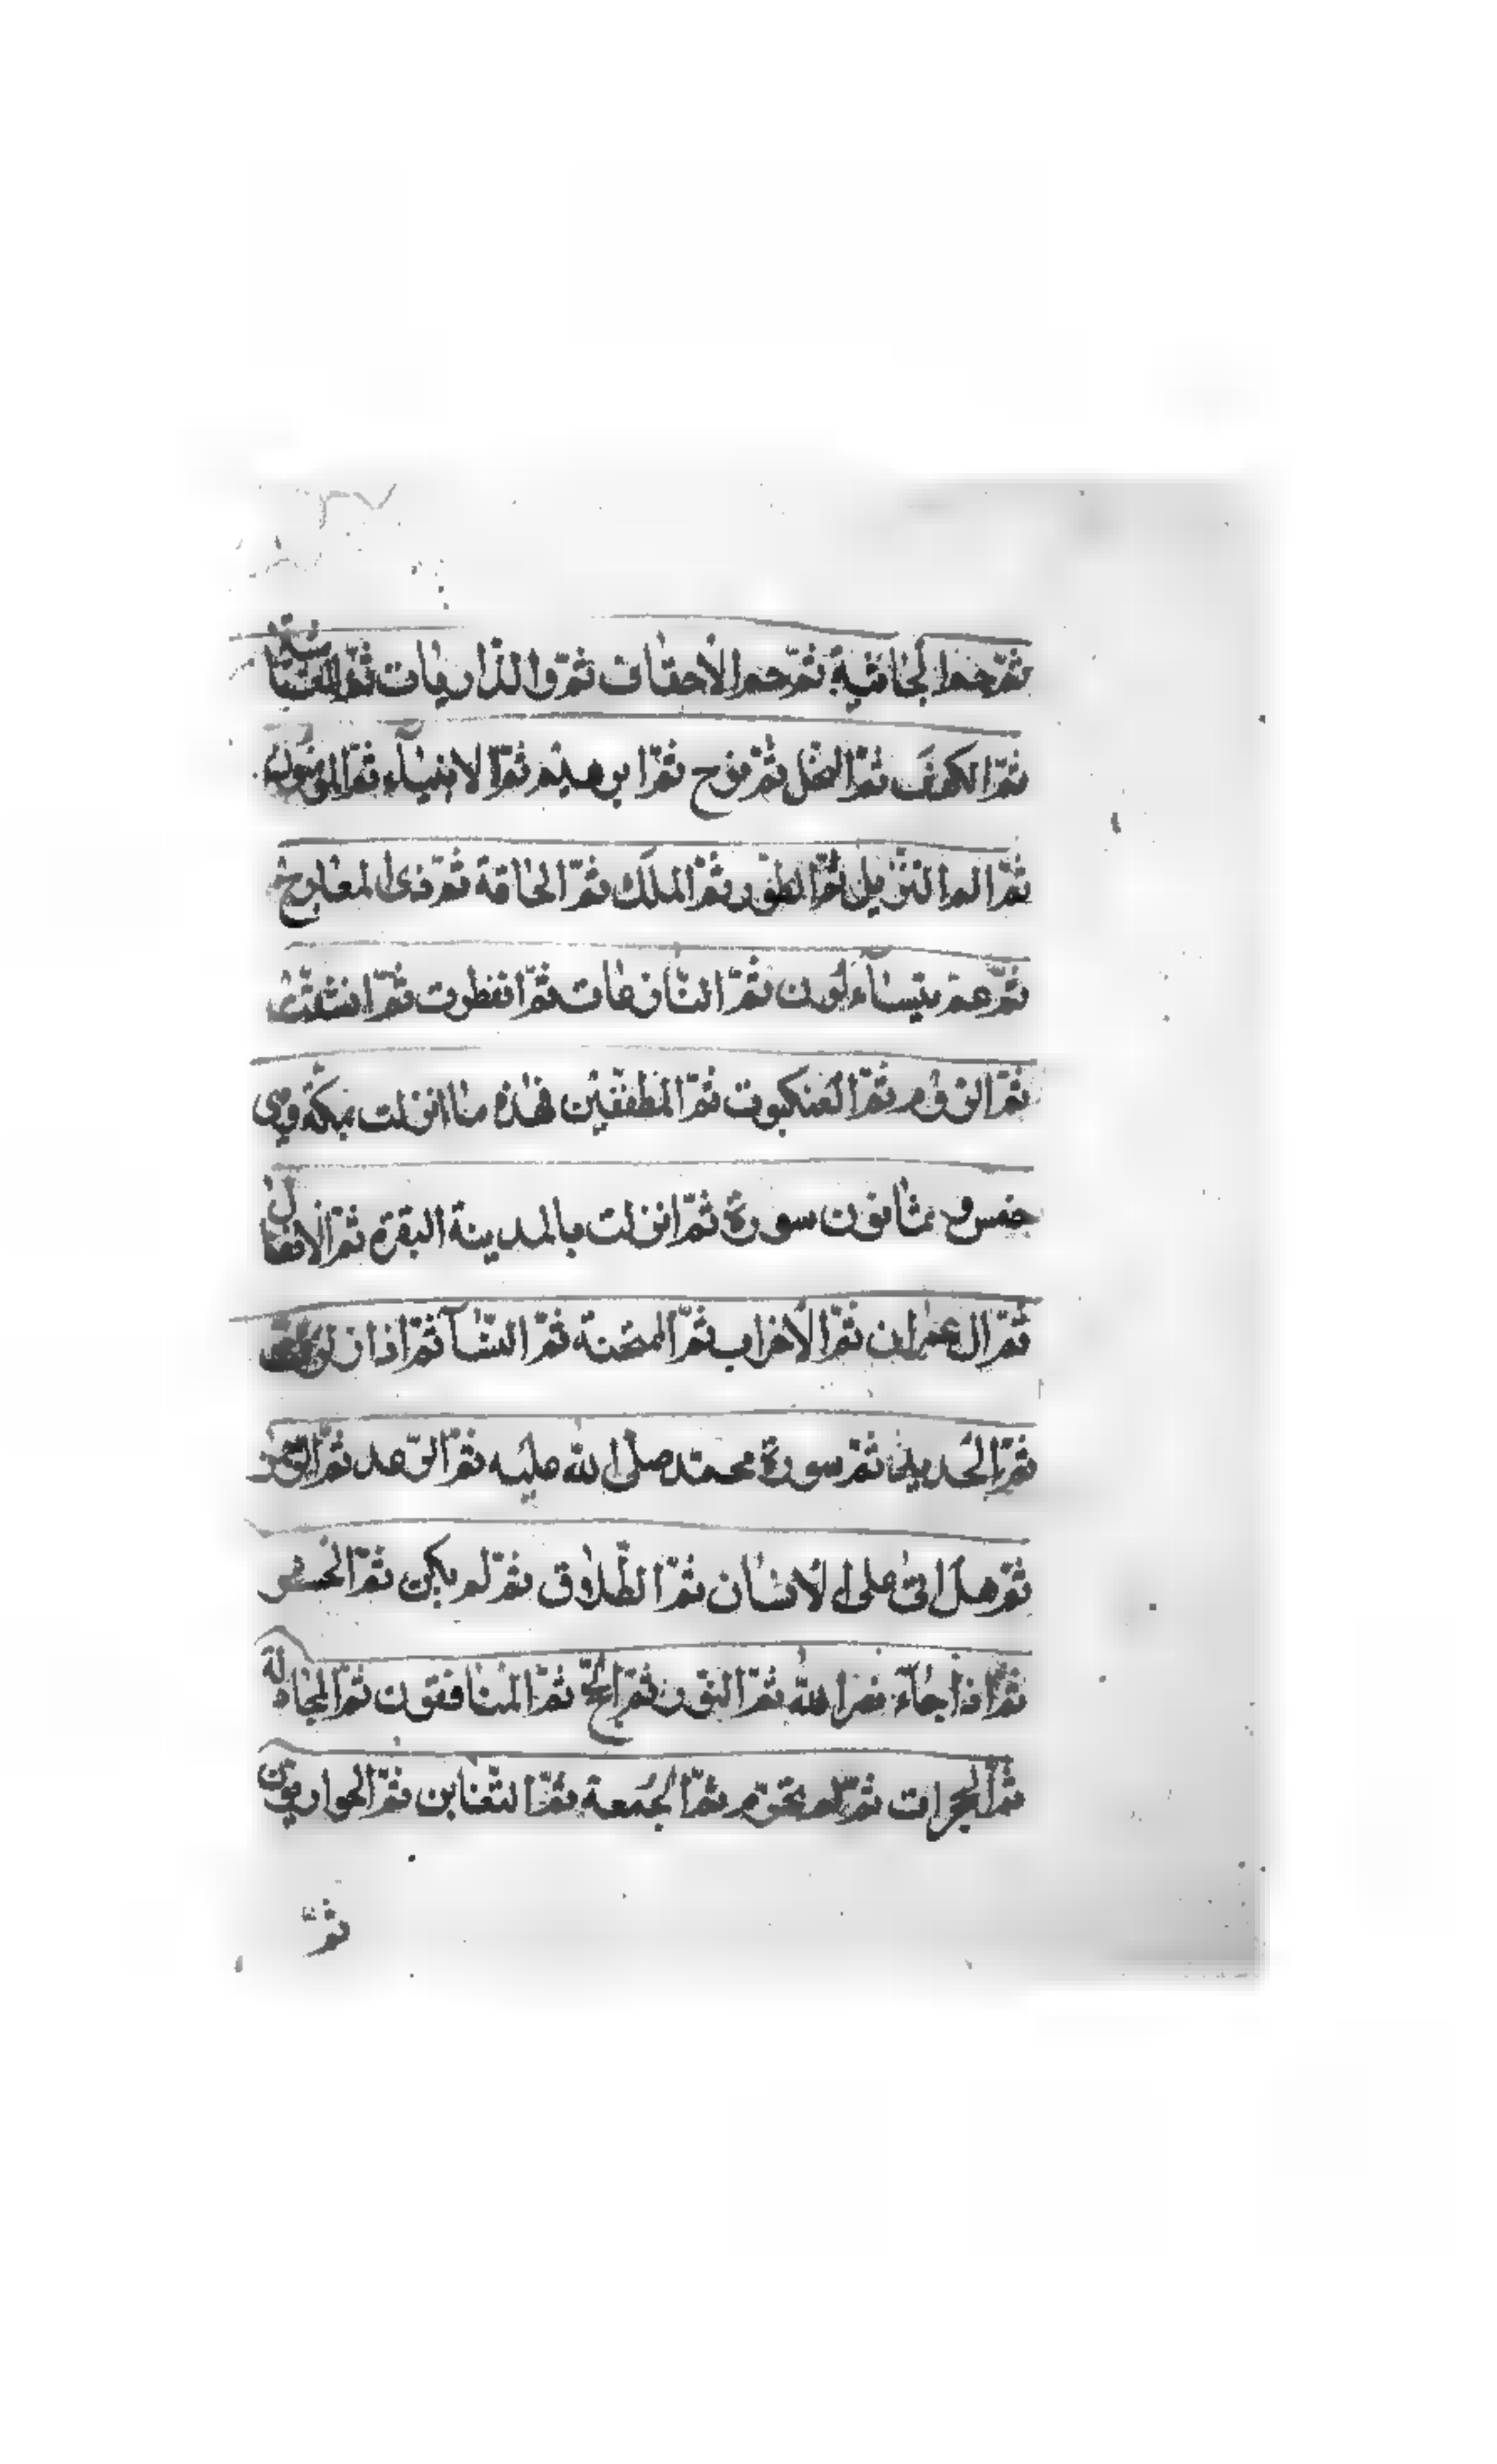 ثمّ حم الجاثية ثمّ حم الأحقاف ثمّ والذّاريات ثمّ الغاشية
ثمّ الكهف ثمّ النحل ثمّ نوح ثمّ ابرهيم ثمّ الانبيآء ثمّ المؤمنون
ثمّ الم التنزيل ثمّ الطور ثمّ الملك ثمّ الحاقة ثمّ ذى المعارج
ثمّ عمّ يتسآءلون ثمّ النّازعات ثمّ انفطرت ثمّ انشقّت
ثمّ الروم ثمّ العنكبوت ثمّ المطففين فهذه ما انزلت بمكّة وهى
خمس وثمانون سورة ثمّ انزلت بالمدينة البقرة ثمّ الأنفال
ثمّ ال عمران ثمّ الأحزاب ثمّ الممتحنة ثمّ النّسآ ثمّ اذا زلزلت
ثمّ الحديد ثمّ سورة محمّد صلّى الله عليه ثمّ الرّعد ثمّ الرحمن
ثمّ هل اتى على الانسان ثمّ الطّلاق ثمّ لم يكن ثمّ الحشر
ثمّ اذا جآء نصر الله ثمّ النور ثمّ الحجّ ثمّ المنافقون ثمّ المجادلة
ثمّ الحجرات ثمّ لم تحرّم ثمّ الجمعة ثمّ التّغابن ثمّ الحواريين
ثمّ